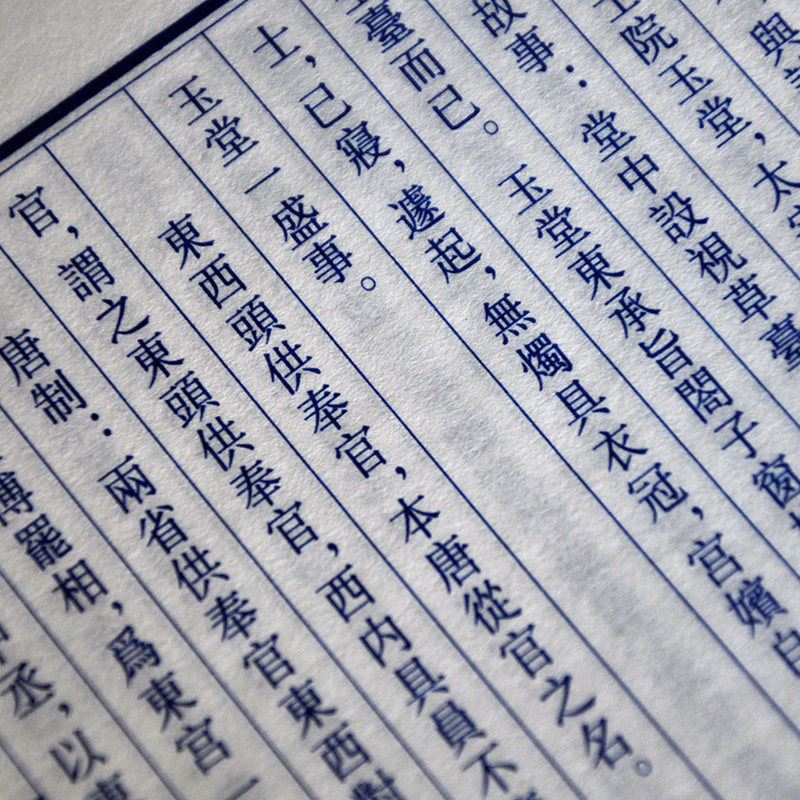 與
士院玉堂，太
故事：堂中設視草臺
臺而已。玉堂東承旨閤子窗
士，已寢，遽起，無燭具衣冠，宮嬪自
玉堂一盛事。
東西頭供奉官，本唐從官之名。
官，謂之東頭供奉官，西内具員不
唐制：兩省供奉官東西對
博罷相，爲東宮一
丞，以